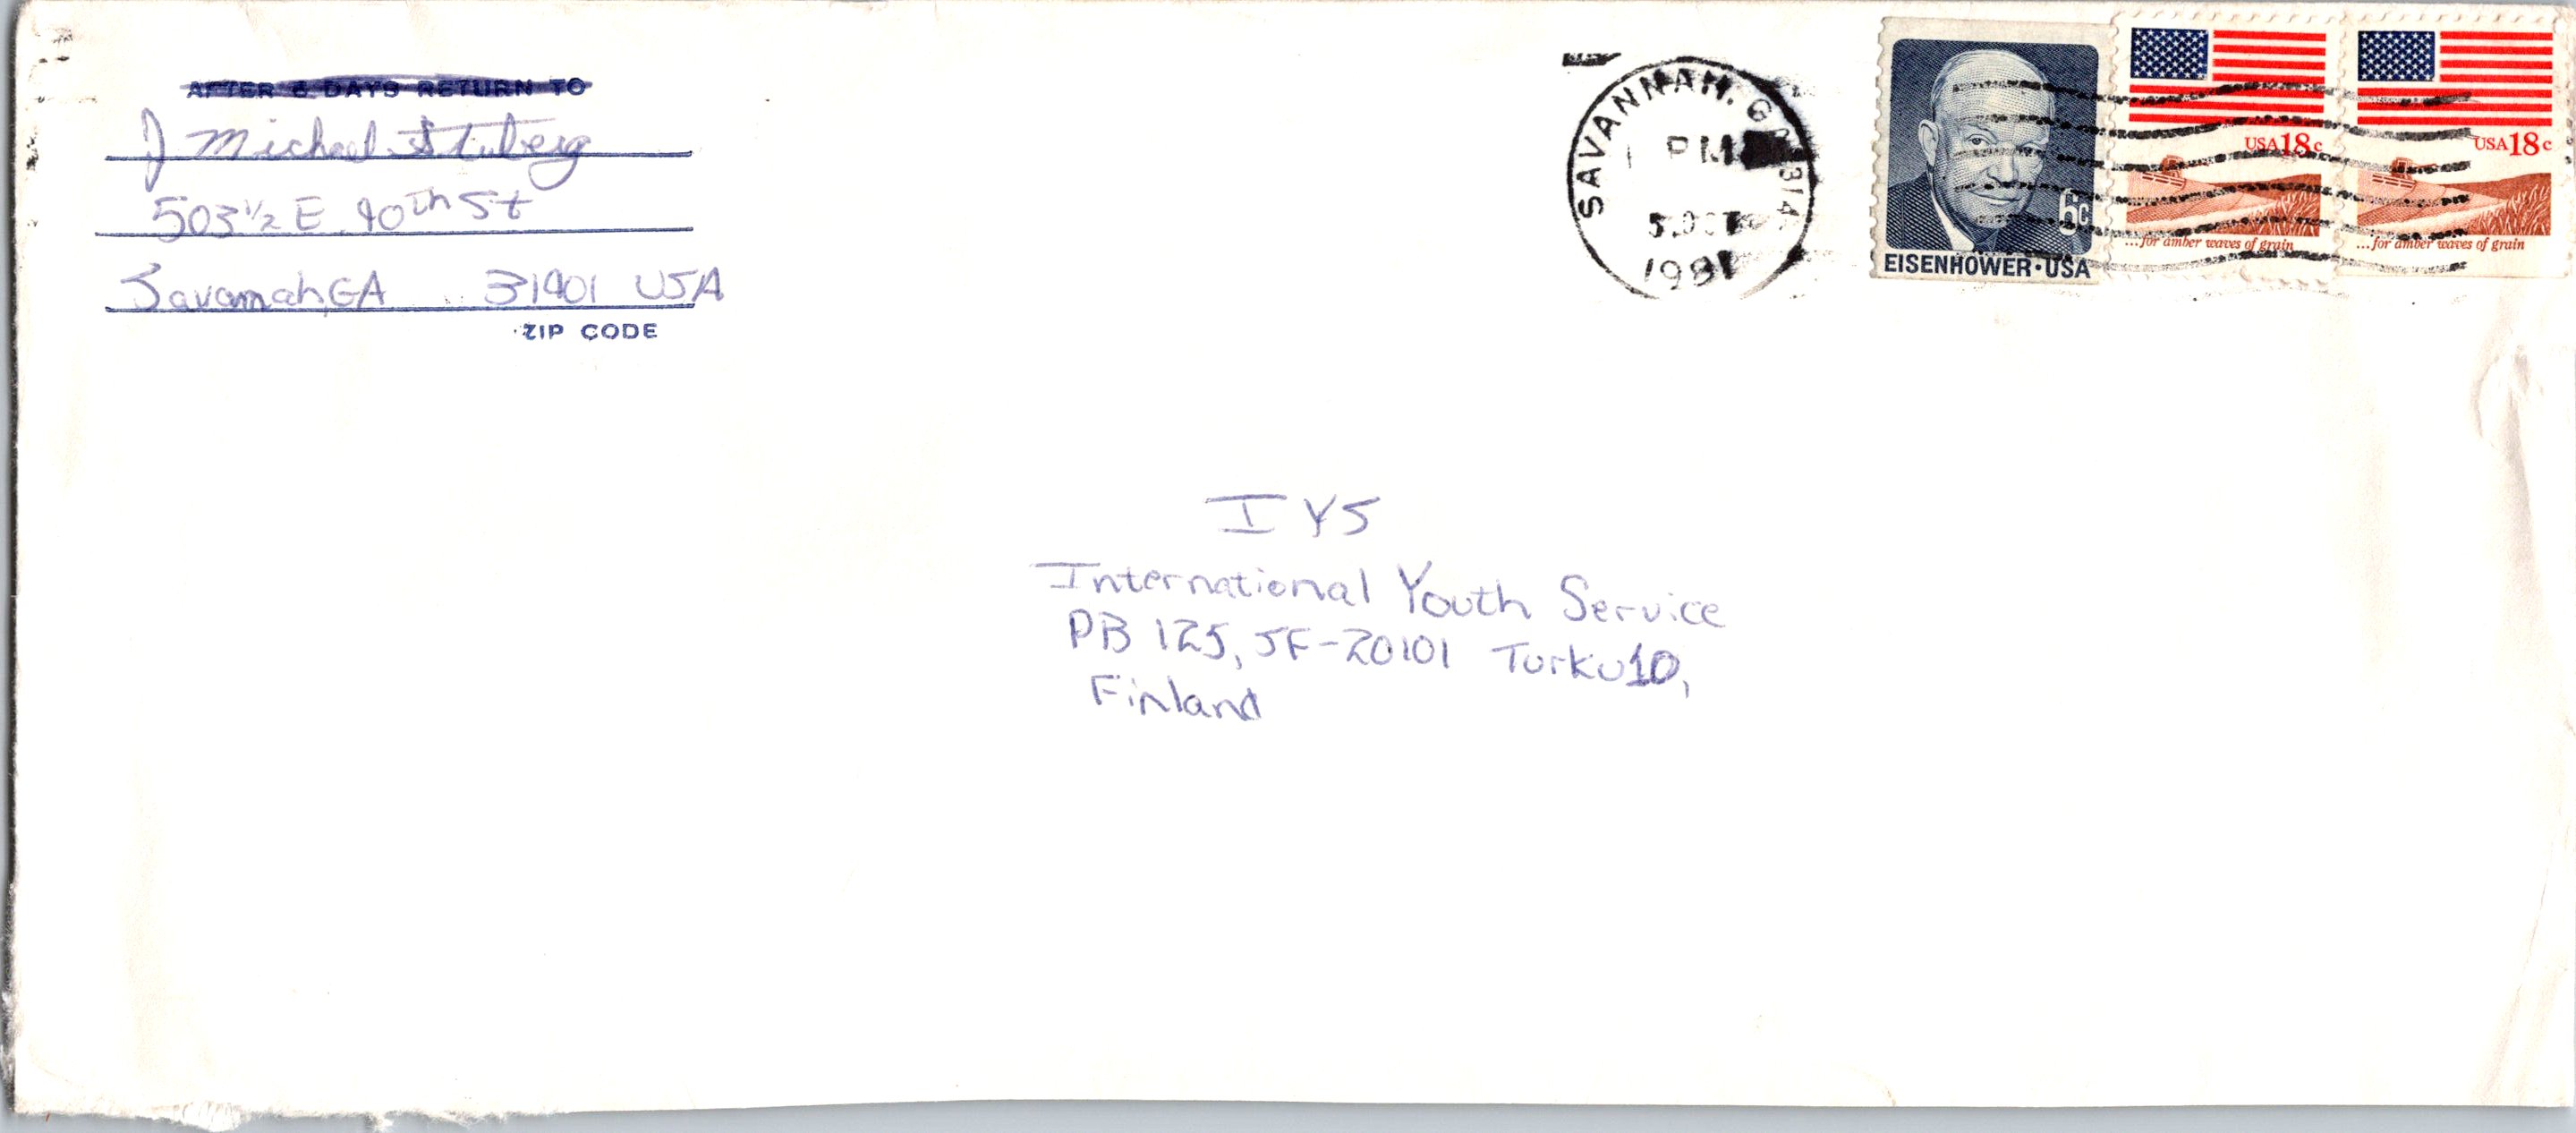 AFTER 5 DAYS RETURN TO
J Michael
503 1/2 E 40th St
Savannah, GA 31401 USA
ZIP CODE
SAVANNAH. GA 314
PM
5 OCT
1981
6c
EISENHOWER·USA
USA18c
...for amber waves of grain
USA18c
...for amber waves of grain
IYS
International Youth Service
PB 125, SF-20101 Turku10,
Finland